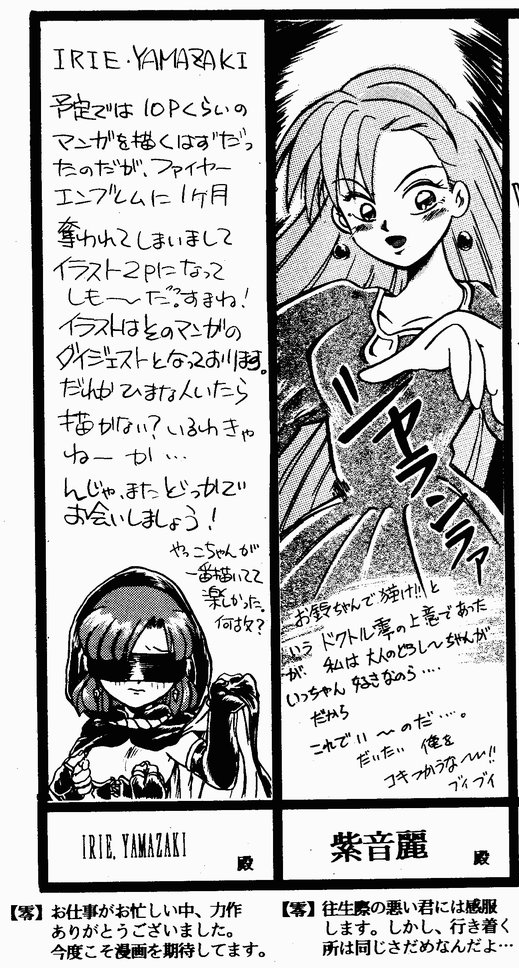 IRIE・YAMAZAKI
予定では10Pくらいの
マンガを描くはずだっ
たのだが、ファイヤー
エンブレムに1ヶ月
奪われてしまいまして
イラスト2Pになって
しも〜〜だ?すまね!
イラストはそのマンガの
ダイジェストとなっております。
だれか ひまな人いたら
描かない?いるわきゃ
ねーか…
んじゃ、またどっかで
お会いしましょう!
やっこちゃんが
一番描いてて
楽しかった。
何故?
IRIE. YAMAZAKI
殿
【零】お仕事がお忙しい中、力作
ありがとうございました。
今度こそ漫画を期待してます。
ジャランラァ
お鈴ちゃんで強け!!と
いう ドクトル零の上意であった
が、私は大人のどろし〜ちゃんが
いっちゃん 好きなのら‥‥
だから
これでいーのだ…。
だいたい 俺を
コキつかうな〜〜!!
ブイブイ
紫音麗
殿
【零】往生際の悪い君には感服
します。しかし、行き着く
所は同じさだめなんだよ…